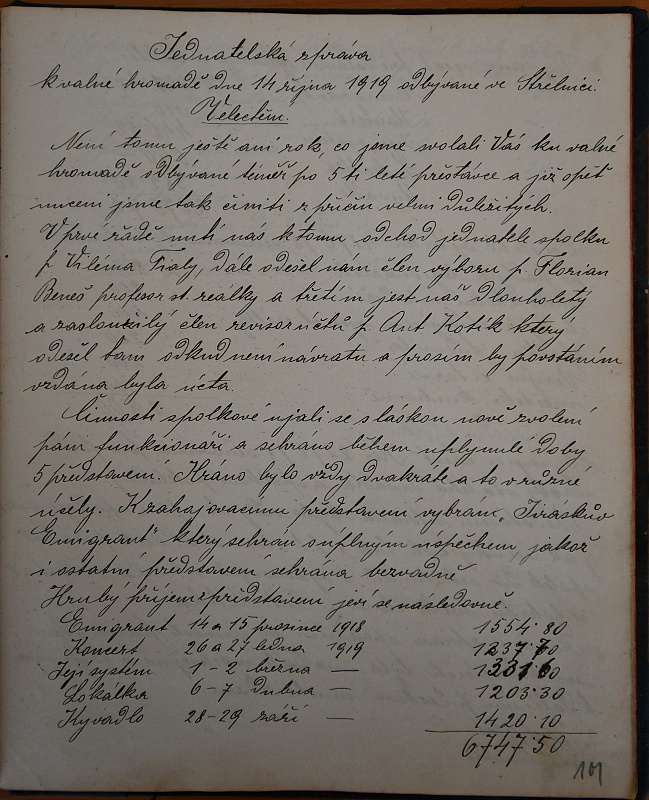 Jednatelská zpráva
k valné hromadě dne 14 října 1919 odbývané ve Střelnici.
Velectěm.
Není tomu ještě ani rok, co jsme svolali Vás ku valné
hromadě odbývané téměř po 5ti leté přestávce a již opět
nuceni jsme tak činiti z příčin velmi důležitých.
V prvé řadě nutí nás k tomu odchod jednatele spolku
p. Viléma Fialy, dále odešel nám člen výboru p. Florian
Beneš profesor st. reálky a třetím jest náš dlouholetý
a zasloužilý člen revisor účtů p. Ant Kotik který
odešel tam odkud není návratu a prosím by povstáním
vzdána byla úcta.
Činnosti spolkové ujali se s láskou nově zvolení
páni funkcionáři a sehráno během uplynulé doby
5 představení. Hráno bylo vždy dvakráte a to v různé
účely. K zahajovacímu představení vybrán „Jiráskův
Emigrant" který sehrán s úplným úspěchem jakož
i ostatní představení sehrána bezvadně
Hrubý příjem z představení jeví se následovně.
Emigrant 14 a 15 prosince 1918 1554·80
Koncert 26 a 27 ledna 1919 1237·70
Její systém 1-2 března — 1331·60
Lokálka 6-7 dubna — 1203·30
Kyvadlo 28-29 září — 1420·10
6747·50
101